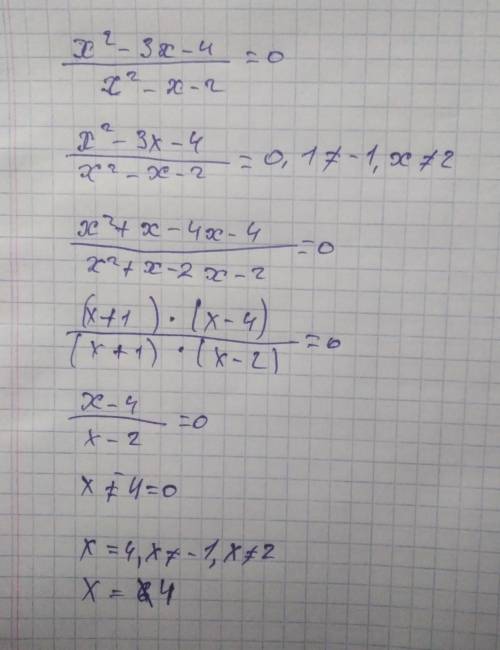 x² - 3x - 4 / x² - x - 2 = 0
x² - 3x - 4 / x² - x - 2 = 0, 1 ≠ -1, x ≠ 2
x² + x - 4x - 4 / x² + x - 2x - 2 = 0
(x+1) · (x-4) / (x+1) · (x-2) = 0
x - 4 / x - 2 = 0
x ≠ 4 = 0
x = 4, x ≠ -1, x ≠ 2
x = 4